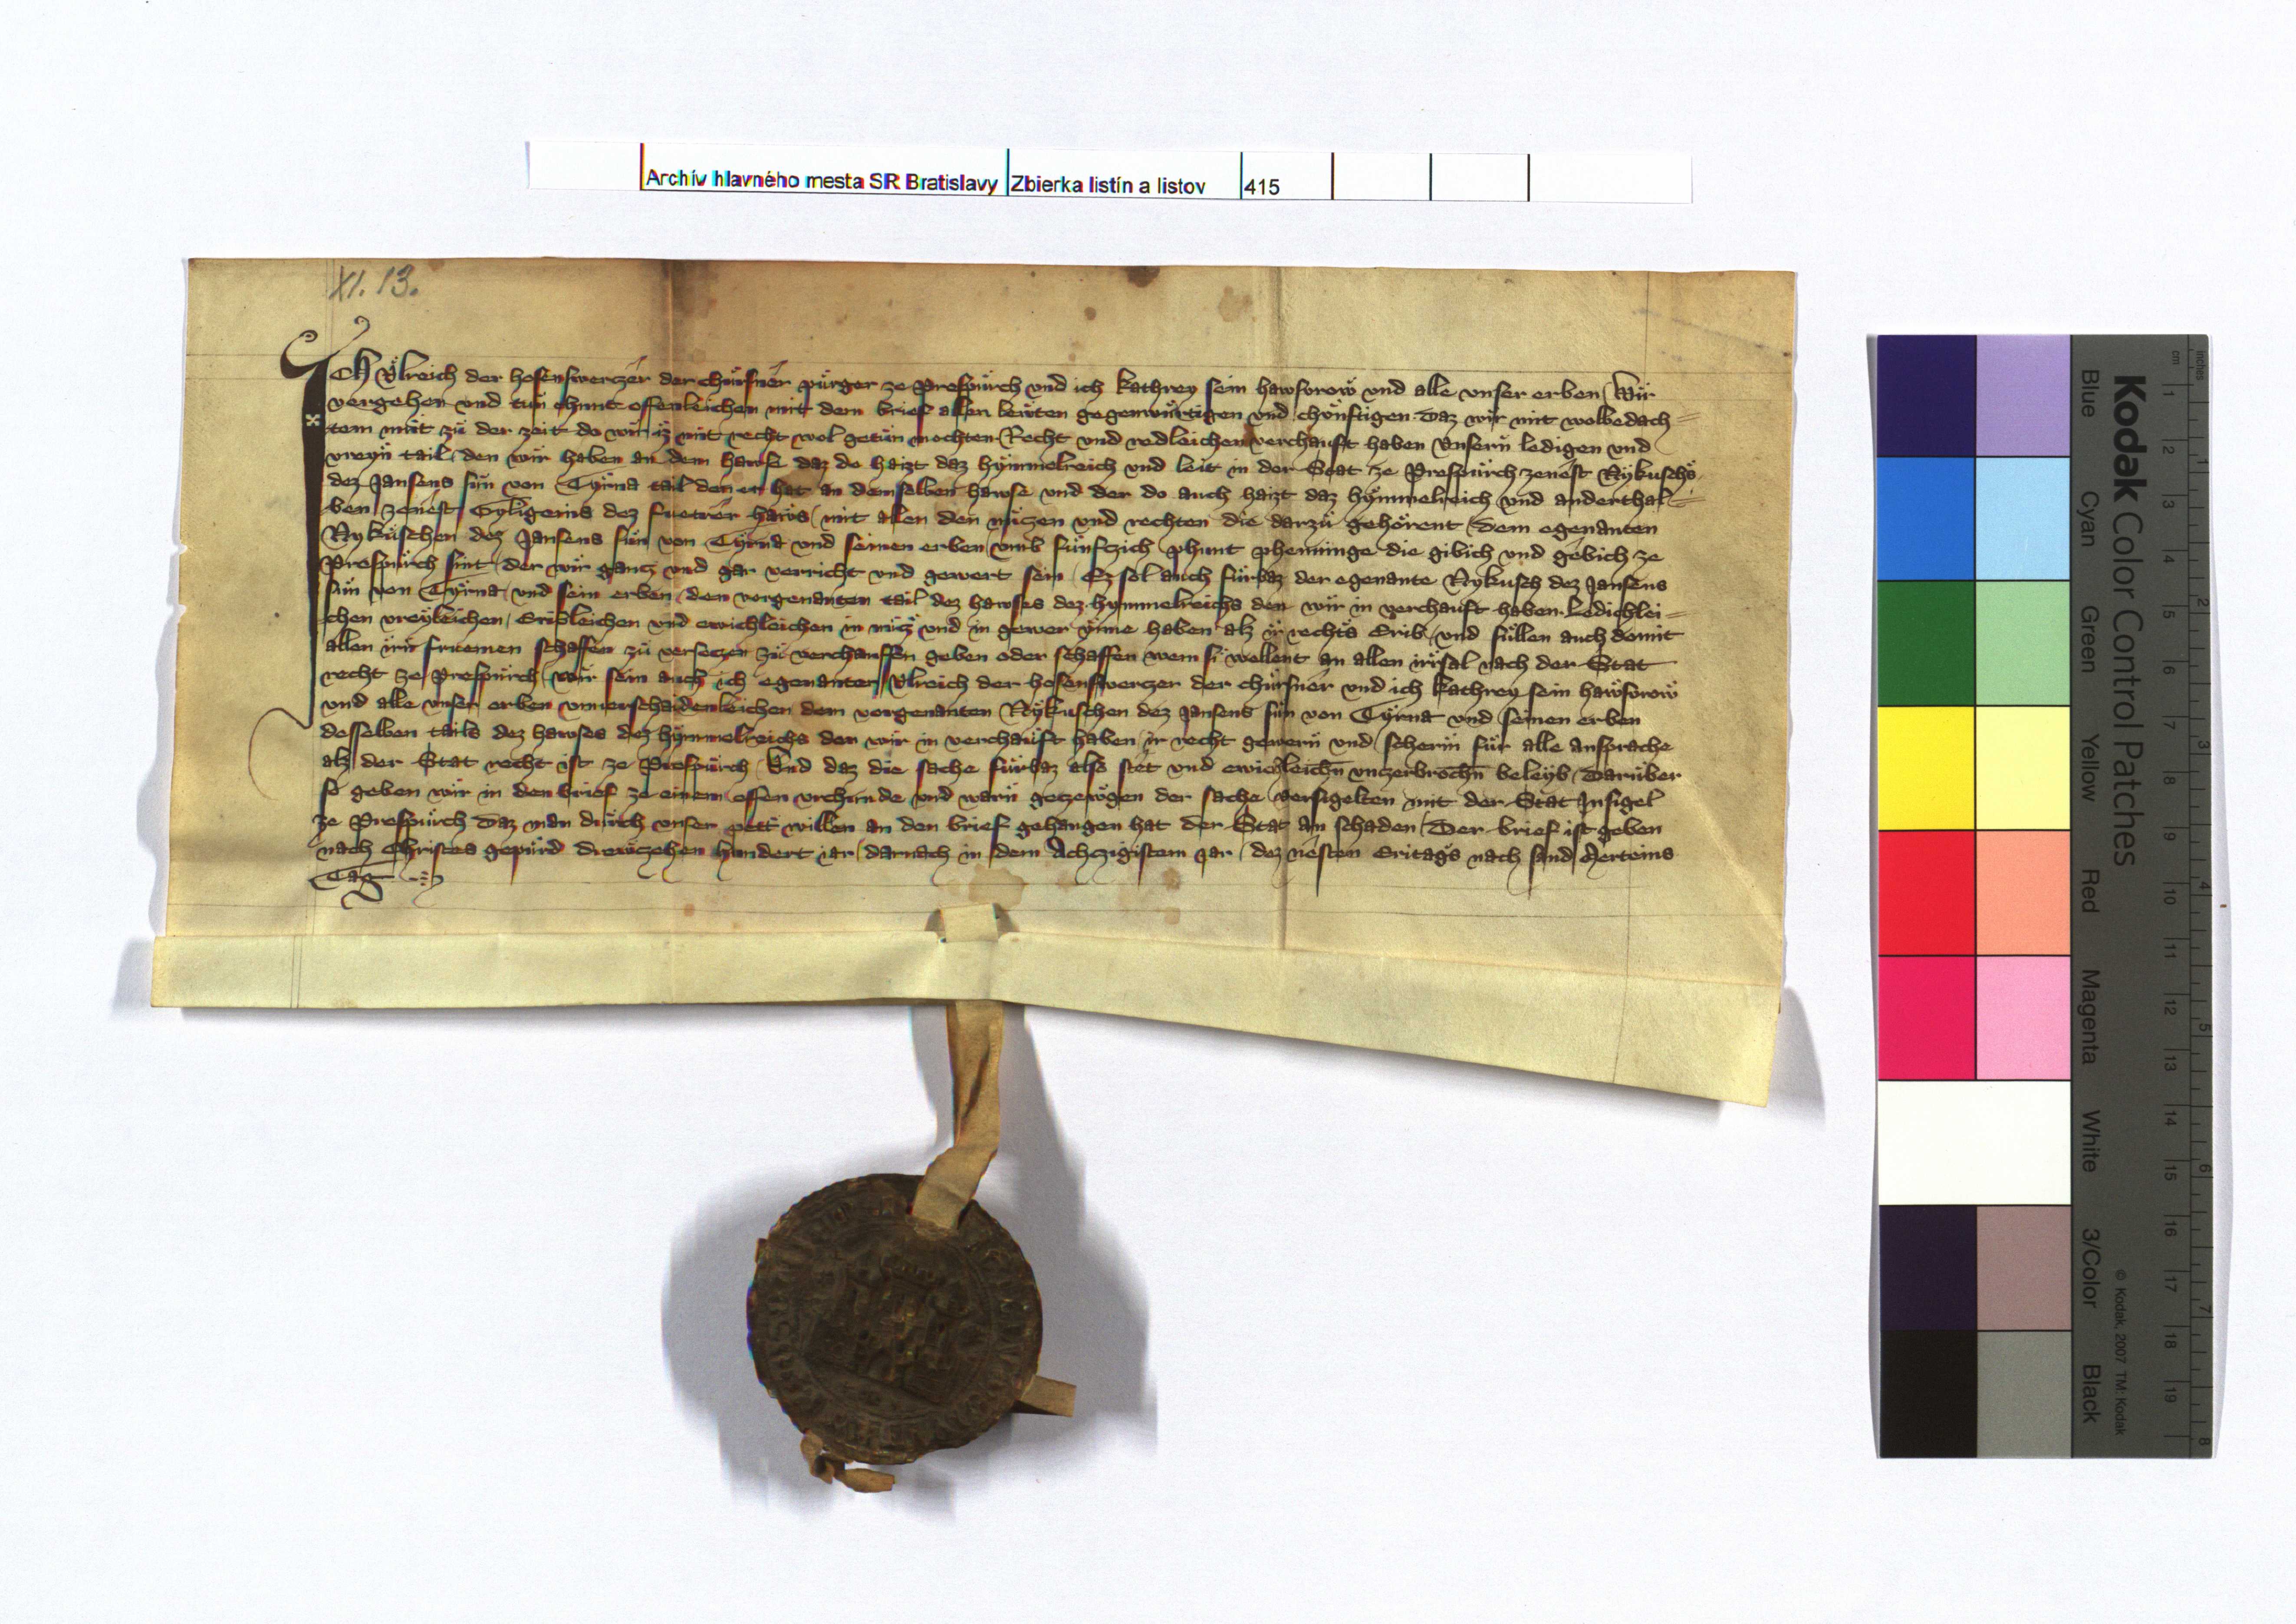 Archív hlavného mesta SR Bratislavy Zbierka listín a listov 415
XI. 13.
Ich Ůlreich der hosenswerczer der chürsner pürger ze Prespürch und ich Kathrey sein hawsvrow und alle vnser erben Wir
vergehen und tün chunt offenleichen mit dem brief allen lewten gegenwürtigen und chönftigen daz wir mit wolbedach=
tem müt zü der zeit do wir iz mit recht wol getün mochten Recht und redleichen verchauft haben Vnsern ledigen und
vreyn tail den wir haben an dem hawse daz do haizt daz hymmelreich und leit in der Stat ze Prespürch zenest Rykuschs
dez Jansens sün von Tyrna tail den er hat an demselben hawse und der do auch haizt daz hymmelreich und anderthal=
ben zenest Gyligeins dez fuetrer haws mit allen den nützen und rechten die darzü gehörent dem egenanten
Rykuschen dez Jansens sün von Tyrna und seinen erben vmb fünfczich phunt phenninge die gibich und gebich ze
Prespürch sint der wir gantz und gar verricht und gewert sein Ez sol auch fürbaz der egenante Rykusch dez Jansens
sün von Tyrna und sein erben den vorgenanten tail dez hawses dez hymmelreichs den wir in verchauft haben Ledichlei=
chen vreyleichen Eribleichen und ewichleichen in nütz und in gewer ynne haben alz ir rechts Erib und süllen auch domit
allen irn frumen schaffen zü verseczen zü verchauffen geben oder schaffen wem si wellent an allen irrsal nach der Stat
recht ze Prespürch wir sein auch ich egenanter Ůlreich der hosenswerczer der chürsner und ich Kathrey sein hawsvrow
und alle vnser erben vnuerschaidenleichen dem vorgenanten Rykuschen dez Jansens sün von Tyrna und seinen erben
desselben tails dez hawses dez hymmelreichs den wir in verchauft haben ir recht gewern und scherm für alle ansprache
alz der Stat recht ist ze Prespürch Vnd daz die sache fürbaz also stet und ewichleichn vnczerbrochn beleyb Darüber
so geben wir in den brief ze einem offen vrchunde und warn geczewgen der sache versigelten mit der Stat Insigel
ze Prespürch daz man dürch vnser pett willen an den brief gehangen hat der Stat an schaden Der brief ist geben
nach Christes gepürd drewczehen hundert iar darnach in dem Achczigistem Jar dez nesten Eritags nach sand Merteins
Tag
Kodak Color Control Patches
Blue Cyan Green Yellow Red Magenta White 3/Color Black
© Kodak, 2007 TM: Kodak
cm 1 2 3 4 5 6 7 8 9 10 11 12 13 14 15 16 17 18 19
inches 1 2 3 4 5 6 7 8